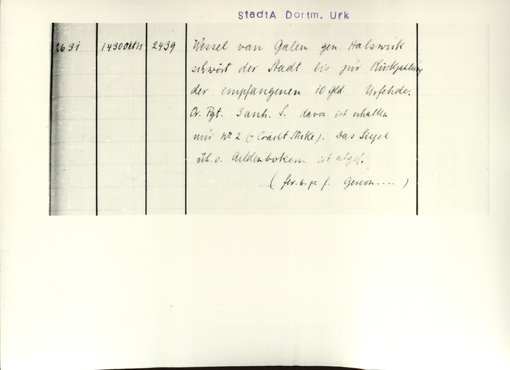 StadtA Dortm. Urk
2631 1430 Okt 13 2439 Wessel van Galen gen Halswick
schwört der Stadt bis zur Rückzahlung
der empfangenen 10 gld Urfehde.
Or. Pgt. 3 anh. S. davon ist erhalten
nur Nr 2 (= Coradt Stecke). Das Siegel
Joh. v. Aeldenbokem ist abgef.
( fer. 6. p. f. Gereon.... )